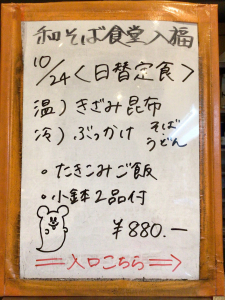 和そば食堂入福
10/24<日替定食>
温)きざみ昆布
冷)ぶっかけ そば うどん
・たきこみご飯
・小鉢2品付
¥880.-
入口こちら